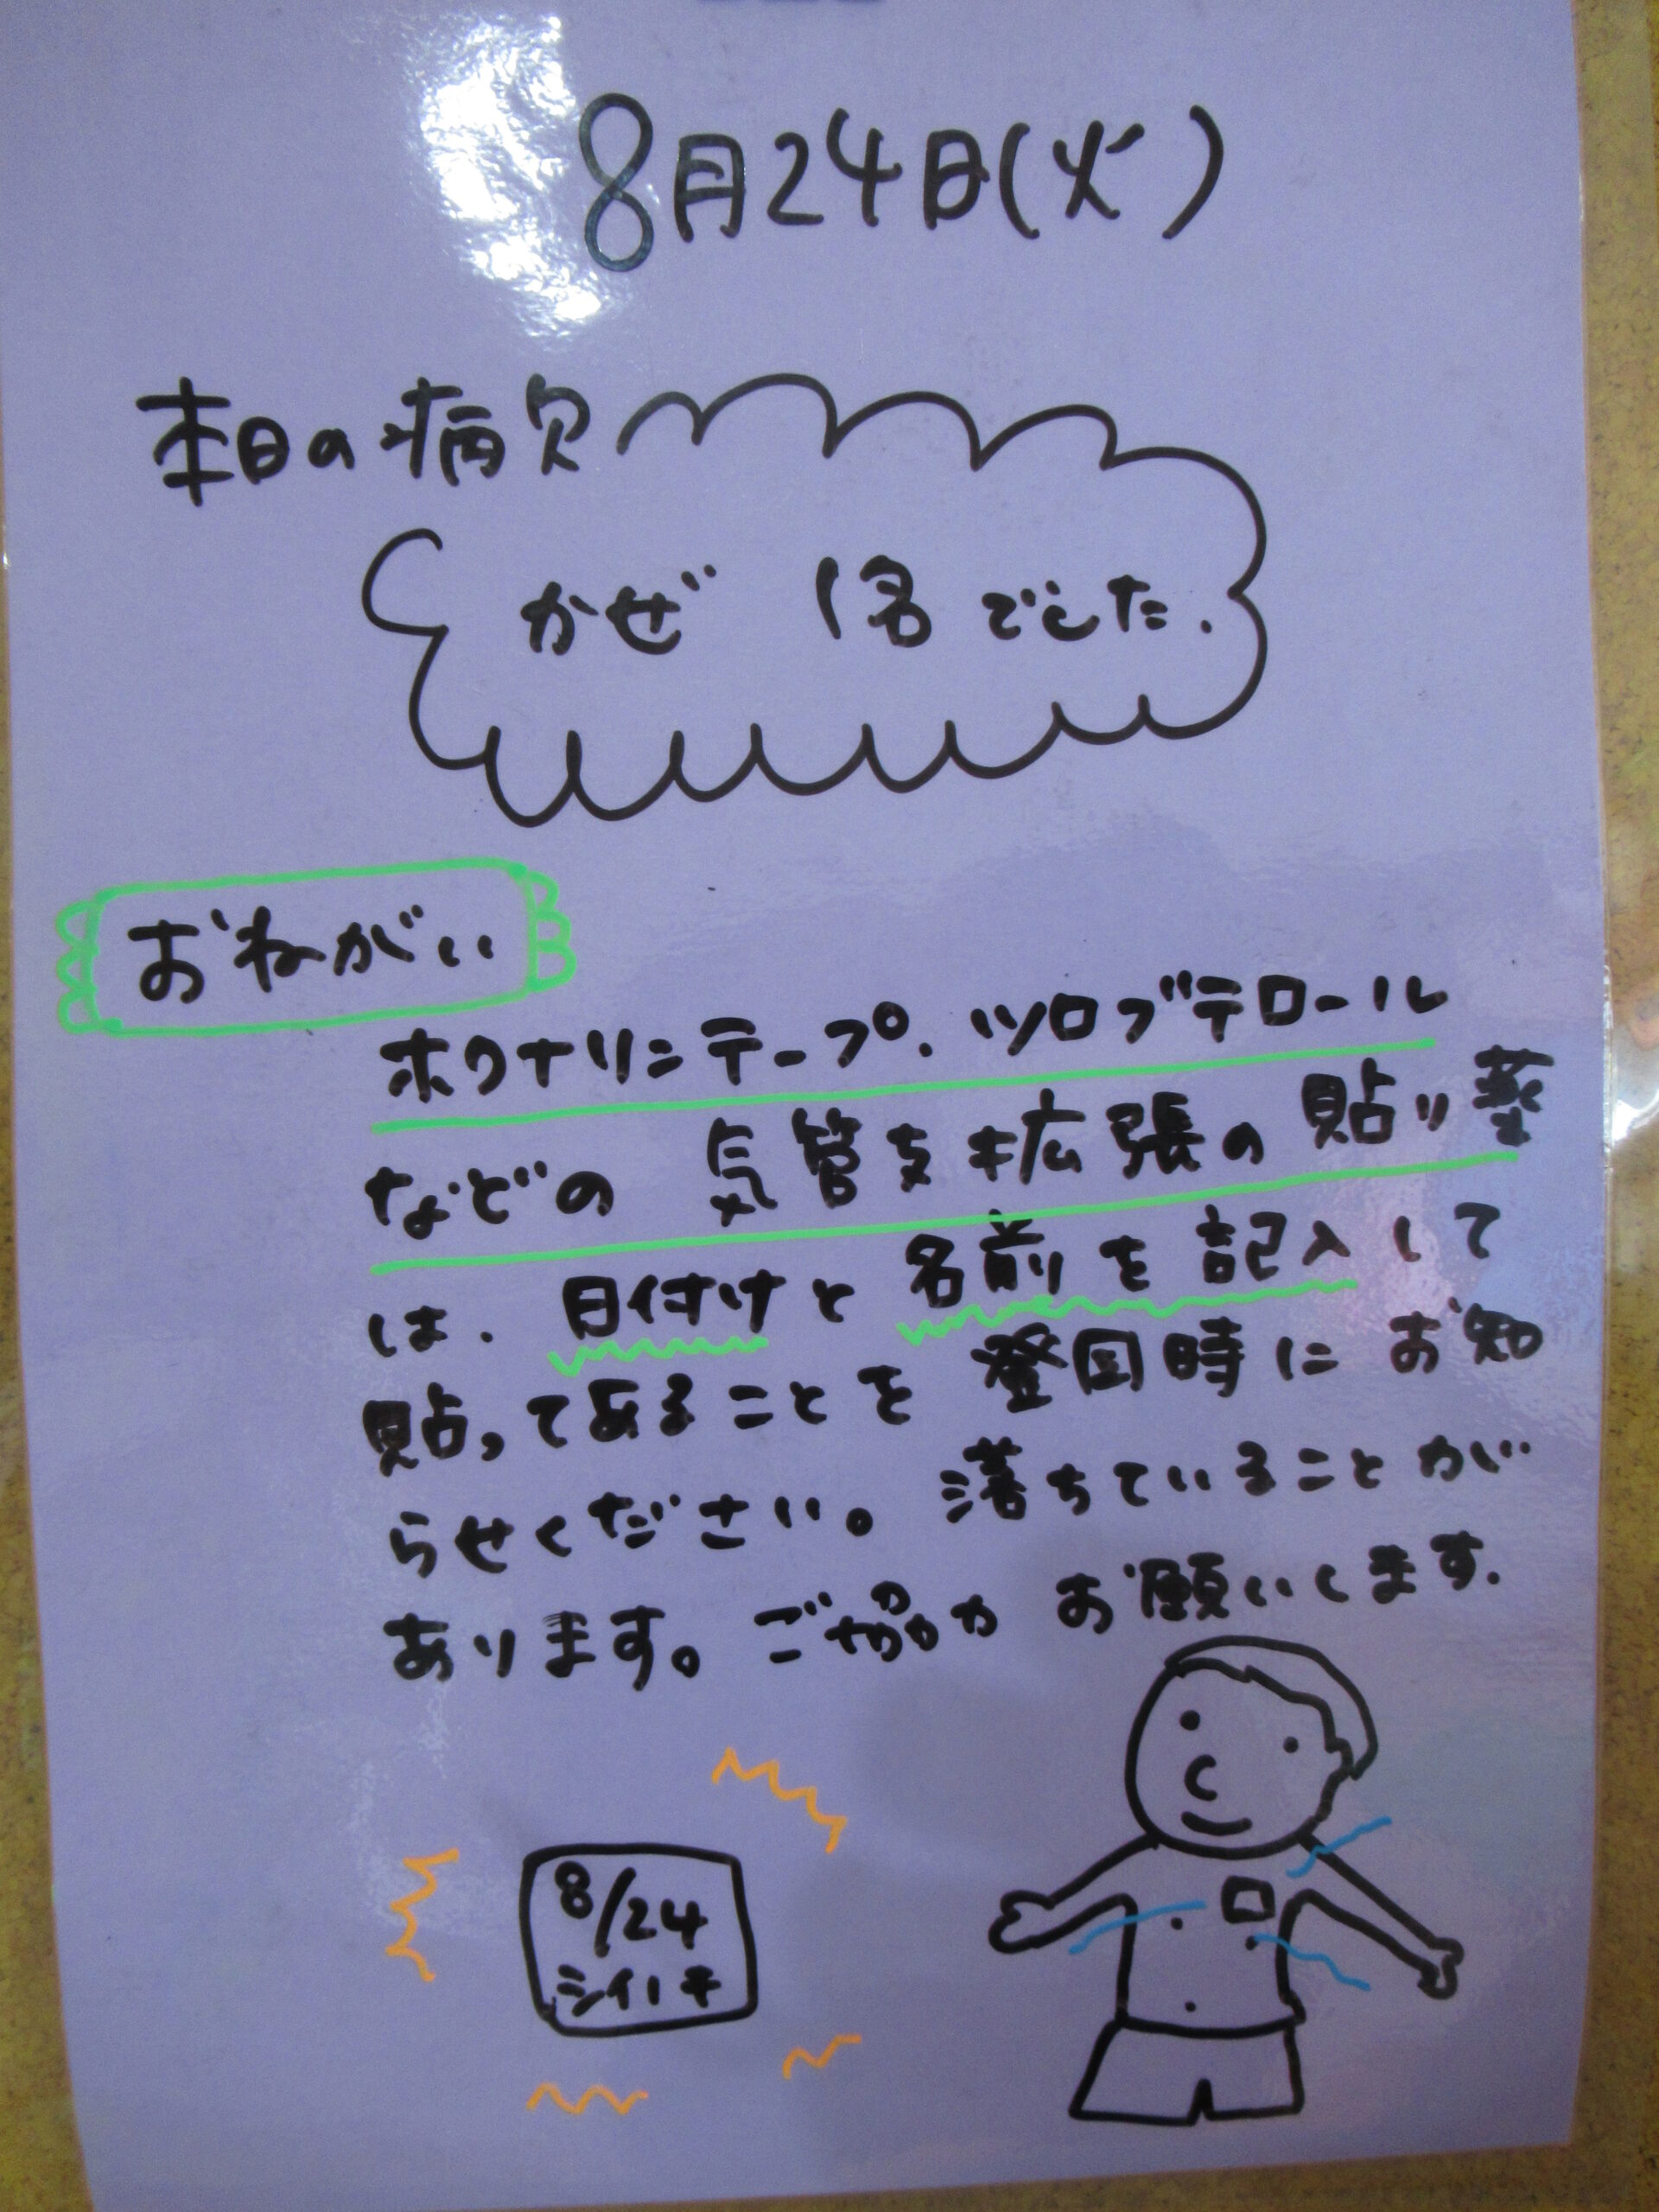 8月24日(火)
本日の病欠
かぜ 1名でした.
おねがい
ホクナリンテープ.ツロブテロール
などの 気管支拡張の貼り薬
は.日付けと名前を記入して
貼ってあることを登園時にお知
らせください。落ちていることが
あります。ご協力お願いします.
8/24
シイハキ